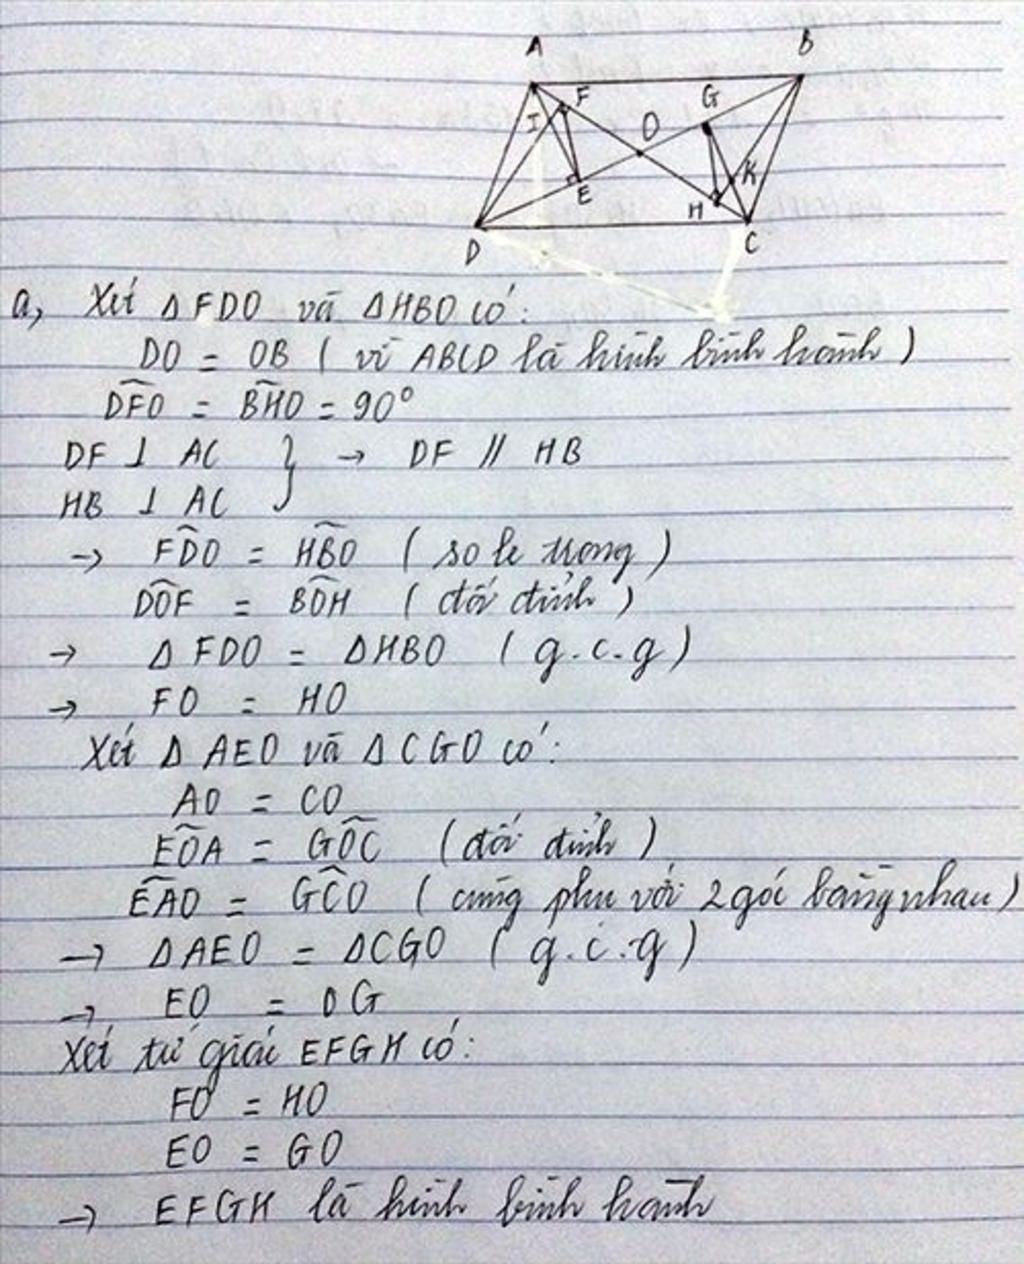 A B
F G
I O
E K
H
D C
a, Xét Δ FDO và ΔHBO có:
DO = OB ( vì ABCD là hình bình hành )
DF̂O = BĤO = 90°
DF ⊥ AC } → DF // HB
HB ⊥ AC
→ FD̂O = HB̂O ( so le trong )
DÔF = BÔH ( đối đỉnh )
→ Δ FDO = ΔHBO ( g.c.g )
→ FO = HO
Xét Δ AEO và Δ CGO có:
AO = CO
EÔA = GÔC ( đối đỉnh )
EÂO = GĈO ( cùng phụ với 2 góc bằng nhau )
→ ΔAEO = ΔCGO ( g.c.g )
→ EO = OG
Xét tứ giác EFGH có:
FO = HO
EO = GO
→ EFGH là hình bình hành